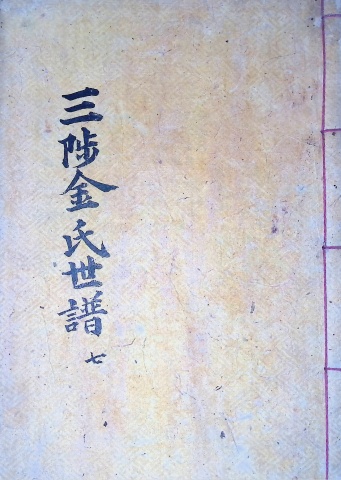 三陟金氏世譜
七